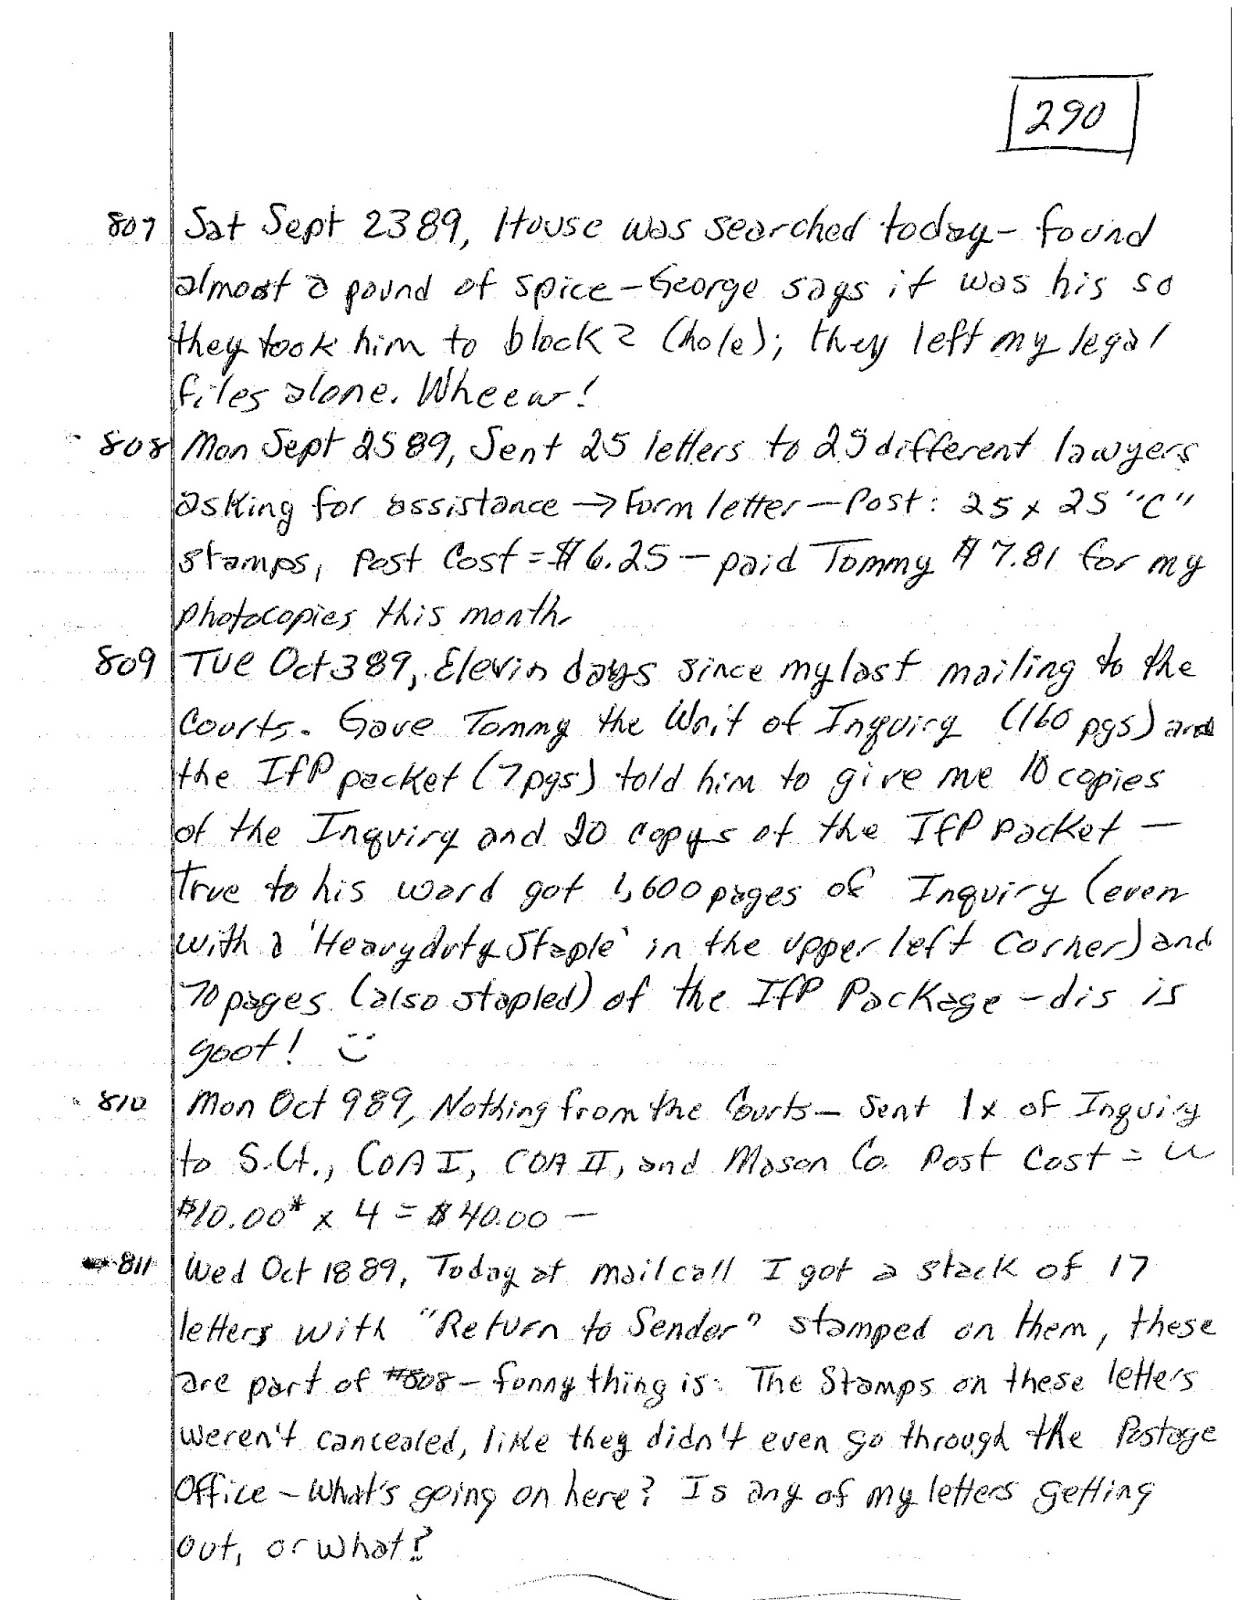 290
807 Sat Sept 23 89, House was searched today - found
almost a pound of spice - George says it was his so
they took him to block 2 (hole); they left my legal
files alone. Wheew!
808 Mon Sept 25 89, Sent 25 letters to 25 different lawyers
asking for assistance → Form letter - Post: 25 x 25 "C"
stamps, Post Cost = $6.25 - paid Tommy $7.81 for my
photocopies this month.
809 Tue Oct 3 89, Elevin days since my last mailing to the
Courts. Gave Tommy the Writ of Inquiry (160 pgs) and
the IfP packet (7pgs) told him to give me 10 copies
of the Inquiry and 20 copys of the IfP packet -
True to his word got 1,600 pages of Inquiry (even
with a 'Heavyduty Staple' in the upper left Corner) and
70 pages (also stapled) of the IfP Package - dis is
goot!
810 Mon Oct 9 89, Nothing from the Courts - Sent 1x of Inquiry
to S.Ct., COA I, COA II, and Mason Co. Post Cost =
$10.00* x 4 = $40.00 -
811 Wed Oct 18 89, Today at mailcall I got a stack of 17
letters with "Return to Sender" stamped on them, these
are part of #808 - funny thing is: The Stamps on these letters
weren't cancealed, like they didn't even go through the Postage
Office - What's going on here? Is any of my letters getting
out, or what?